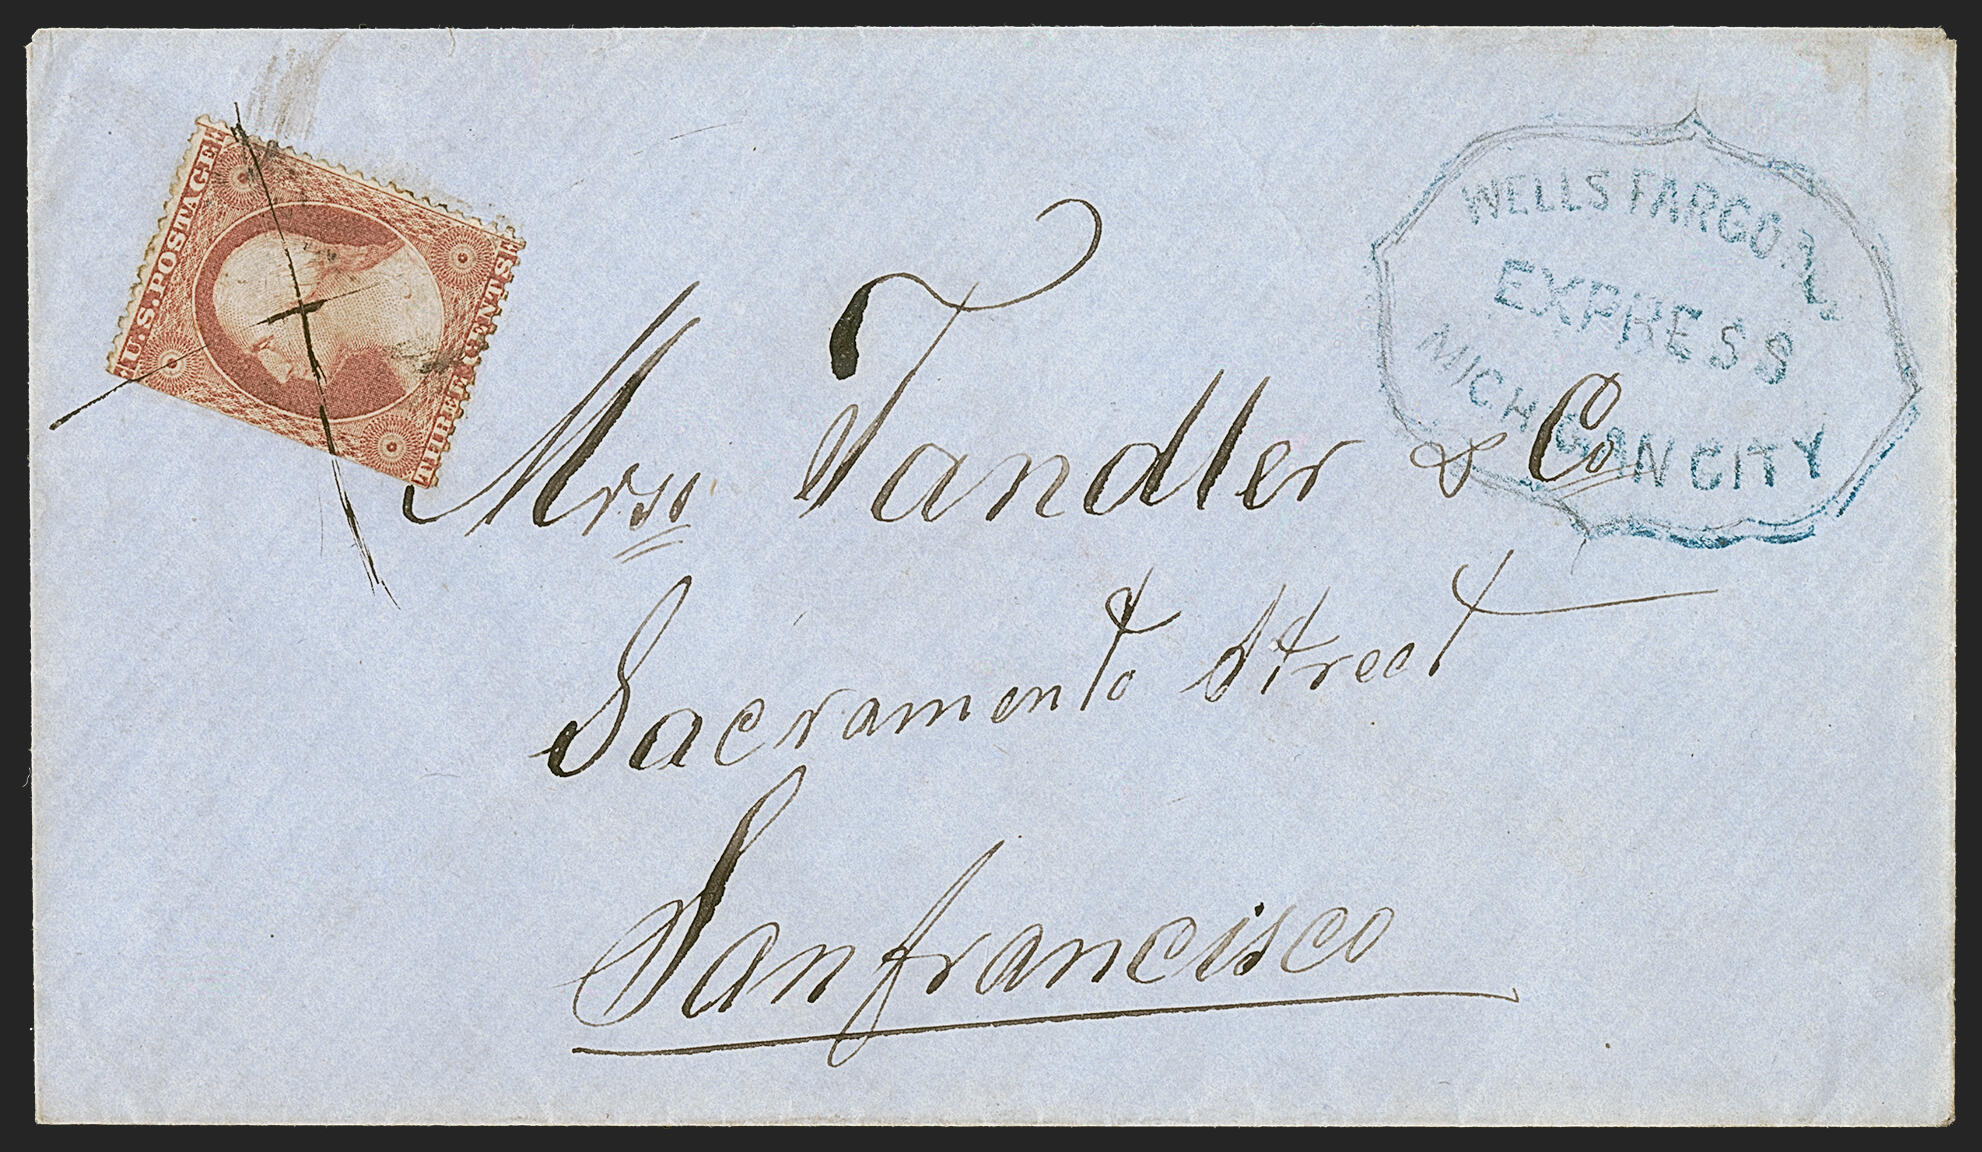 U.S. POSTAGE
THREE CENTS
WELLS FARGO & Co
EXPRESS
MICHIGAN CITY
Mrss Tandler & Co
Sacramento Street
San francisco